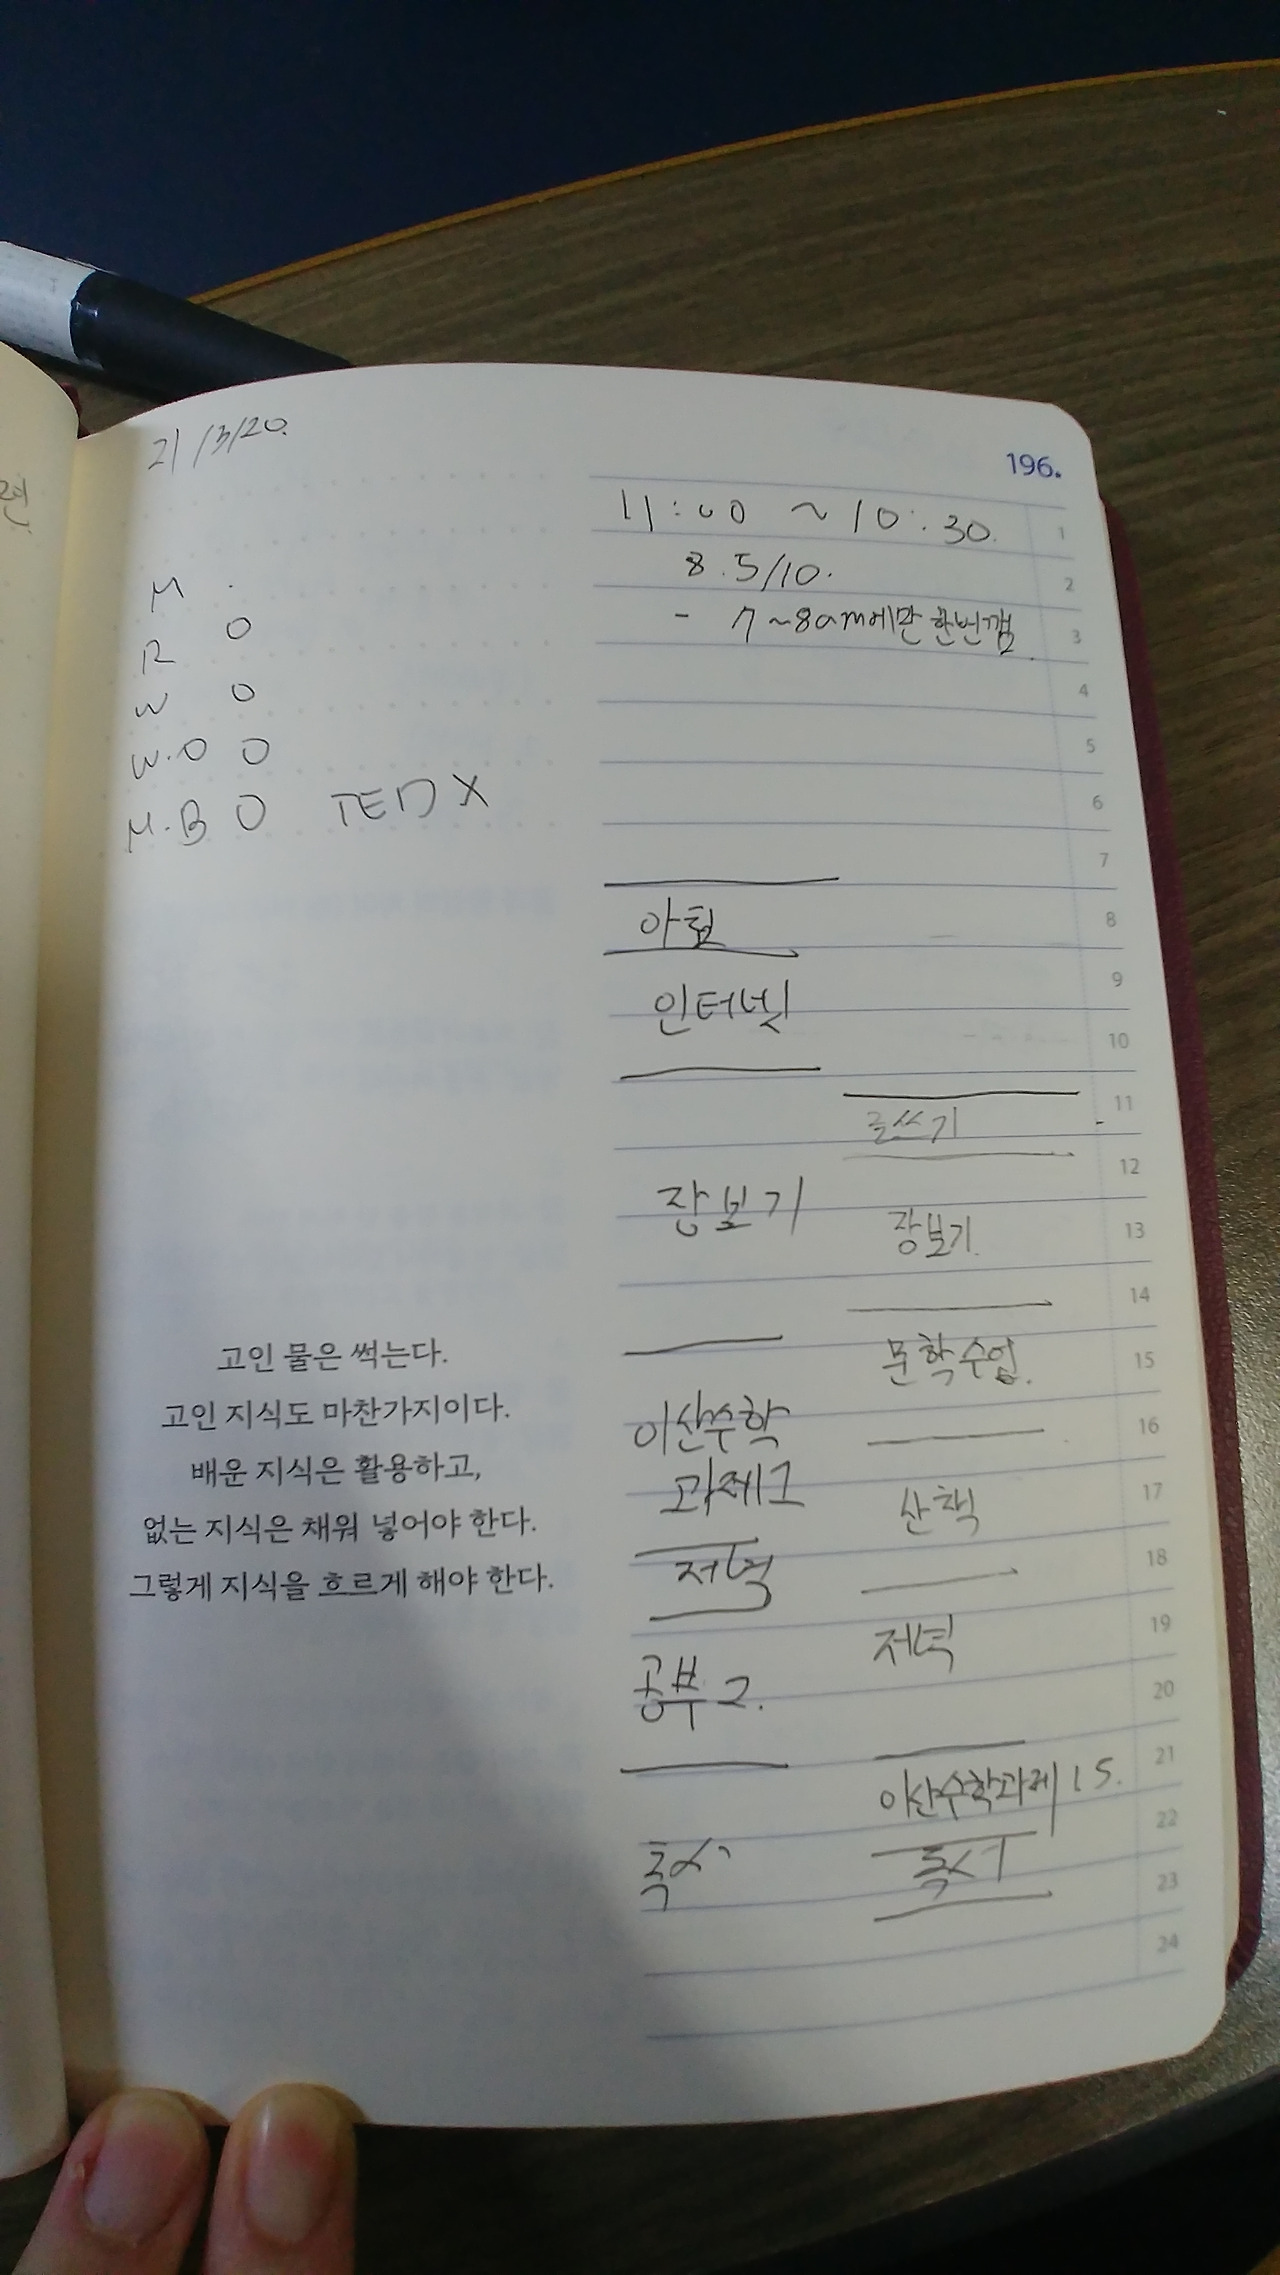 21/3/20.
196.
11:00 ~ 10:30.
8.5/10.
- 7~8am에만 한번깸.
M .
R O
W O
W.O O
M.B O TEDX
1
2
3
4
5
6
7
8
9
10
11
12
13
14
15
16
17
18
19
20
21
22
23
24
아침
인터넷
장보기
이산수학
과제1
저녁
공부2.
독서
글쓰기
장보기.
문학수업.
산책
저녁
이산수학과제 1 5.
독서
고인 물은 썩는다.
고인 지식도 마찬가지이다.
배운 지식은 활용하고,
없는 지식은 채워 넣어야 한다.
그렇게 지식을 흐르게 해야 한다.
련